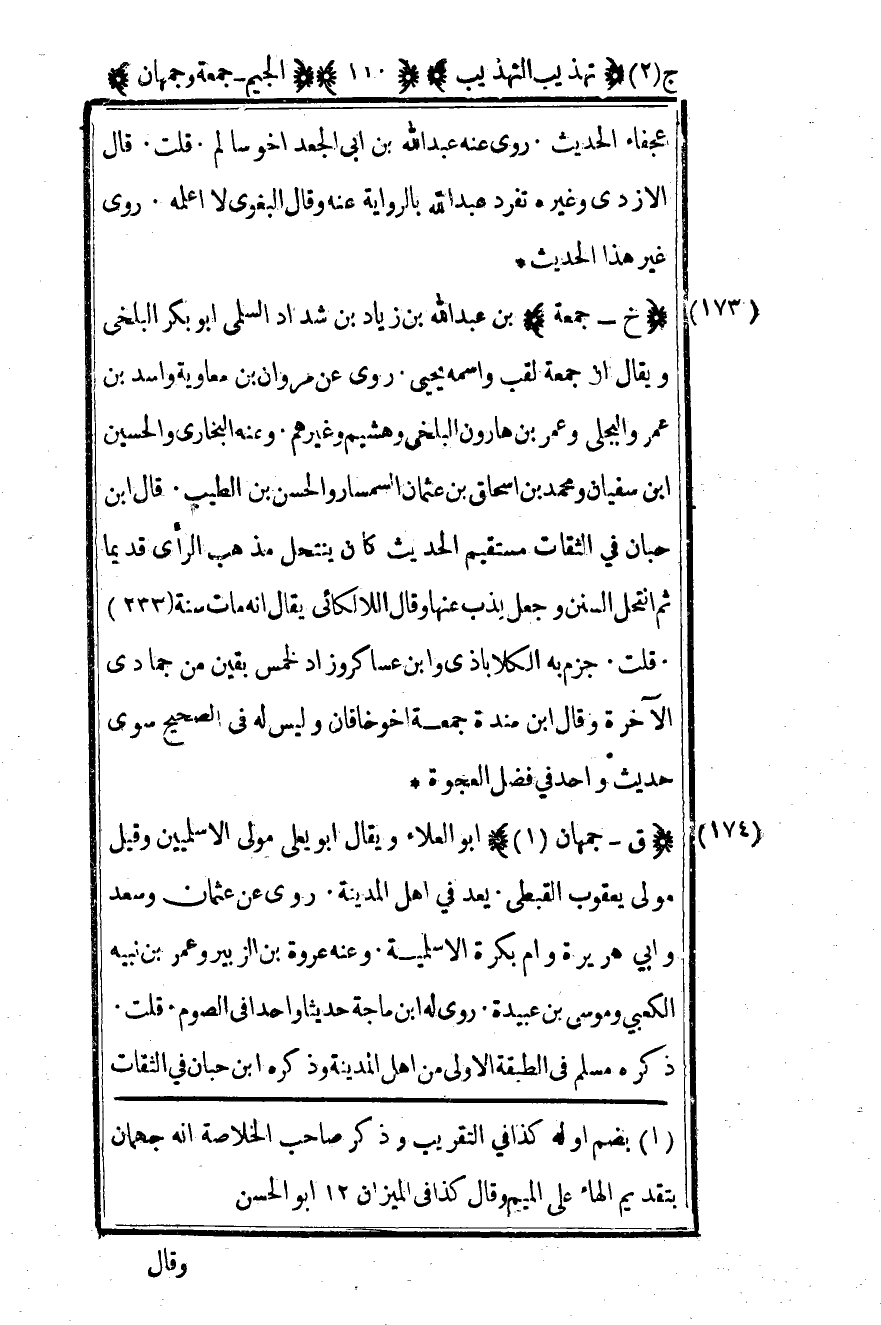 ج(٢) ﴿ تهذيب التهذيب ﴾ ﴿ ١١٠ ﴾ ﴿ الجيم-جمعة وجمهان ﴾
عجفاء الحديث ٠ روى عنه عبدالله بن ابى الجعد اخو سالم ٠ قلت ٠ قال
الازدى وغيره تفرد عبدالله بالرواية عنه وقال البغوى لا اعلمه ٠ روى
غير هذا الحديث *
(١٧٣) ﴿ خ - جمعة ﴾ بن عبدالله بن زياد بن شداد السلمى ابو بكر البلخى
ويقال ان جمعة لقب واسمه يحيى ٠ روى عن مروان بن معاوية واسد بن
عمر والبجلى وعمر بن هارون البلخى وهشيم وغيرهم ٠ وعنه البخارى والحسين
ابن سفيان ومحمد بن اسحاق بن عثمان السمسار والحسن بن الطيب ٠ قال ابن
حبان في الثقات مستقيم الحديث كان ينتحل مذهب الرأى قديما
ثم انتحل السنن وجعل يذب عنها وقال اللالكائى يقال انه مات سنة (٢٣٣)
٠ قلت ٠ جزم به الكلاباذى وابن عساكر وزاد لخمس بقين من جمادى
الآخرة وقال ابن مندة جمعة اخو خاقان وليس له فى الصحيح سوى
حديث واحد في فضل العجوة *
(١٧٤) ﴿ ق - جمهان (١) ﴾ ابو العلاء ويقال ابو يعلى مولى الاسلميين وقيل
مولى يعقوب القبطى ٠ يعد في اهل المدينة ٠ روى عن عثمان وسعد
وابي هريرة وام بكرة الاسلمية ٠ وعنه عروة بن الزبير وعمر بن نبيه
الكعبي وموسى بن عبيدة ٠ روى له ابن ماجة حديثا واحدا فى الصوم ٠ قلت ٠
ذكره مسلم فى الطبقة الاولى من اهل المدينة وذكره ابن حبان في الثقات
(١) بضم اوله كذا في التقريب وذكر صاحب الخلاصة انه جهمان
بتقديم الهاء على الميم وقال كذا فى الميزان ١٢ ابو الحسن
وقال